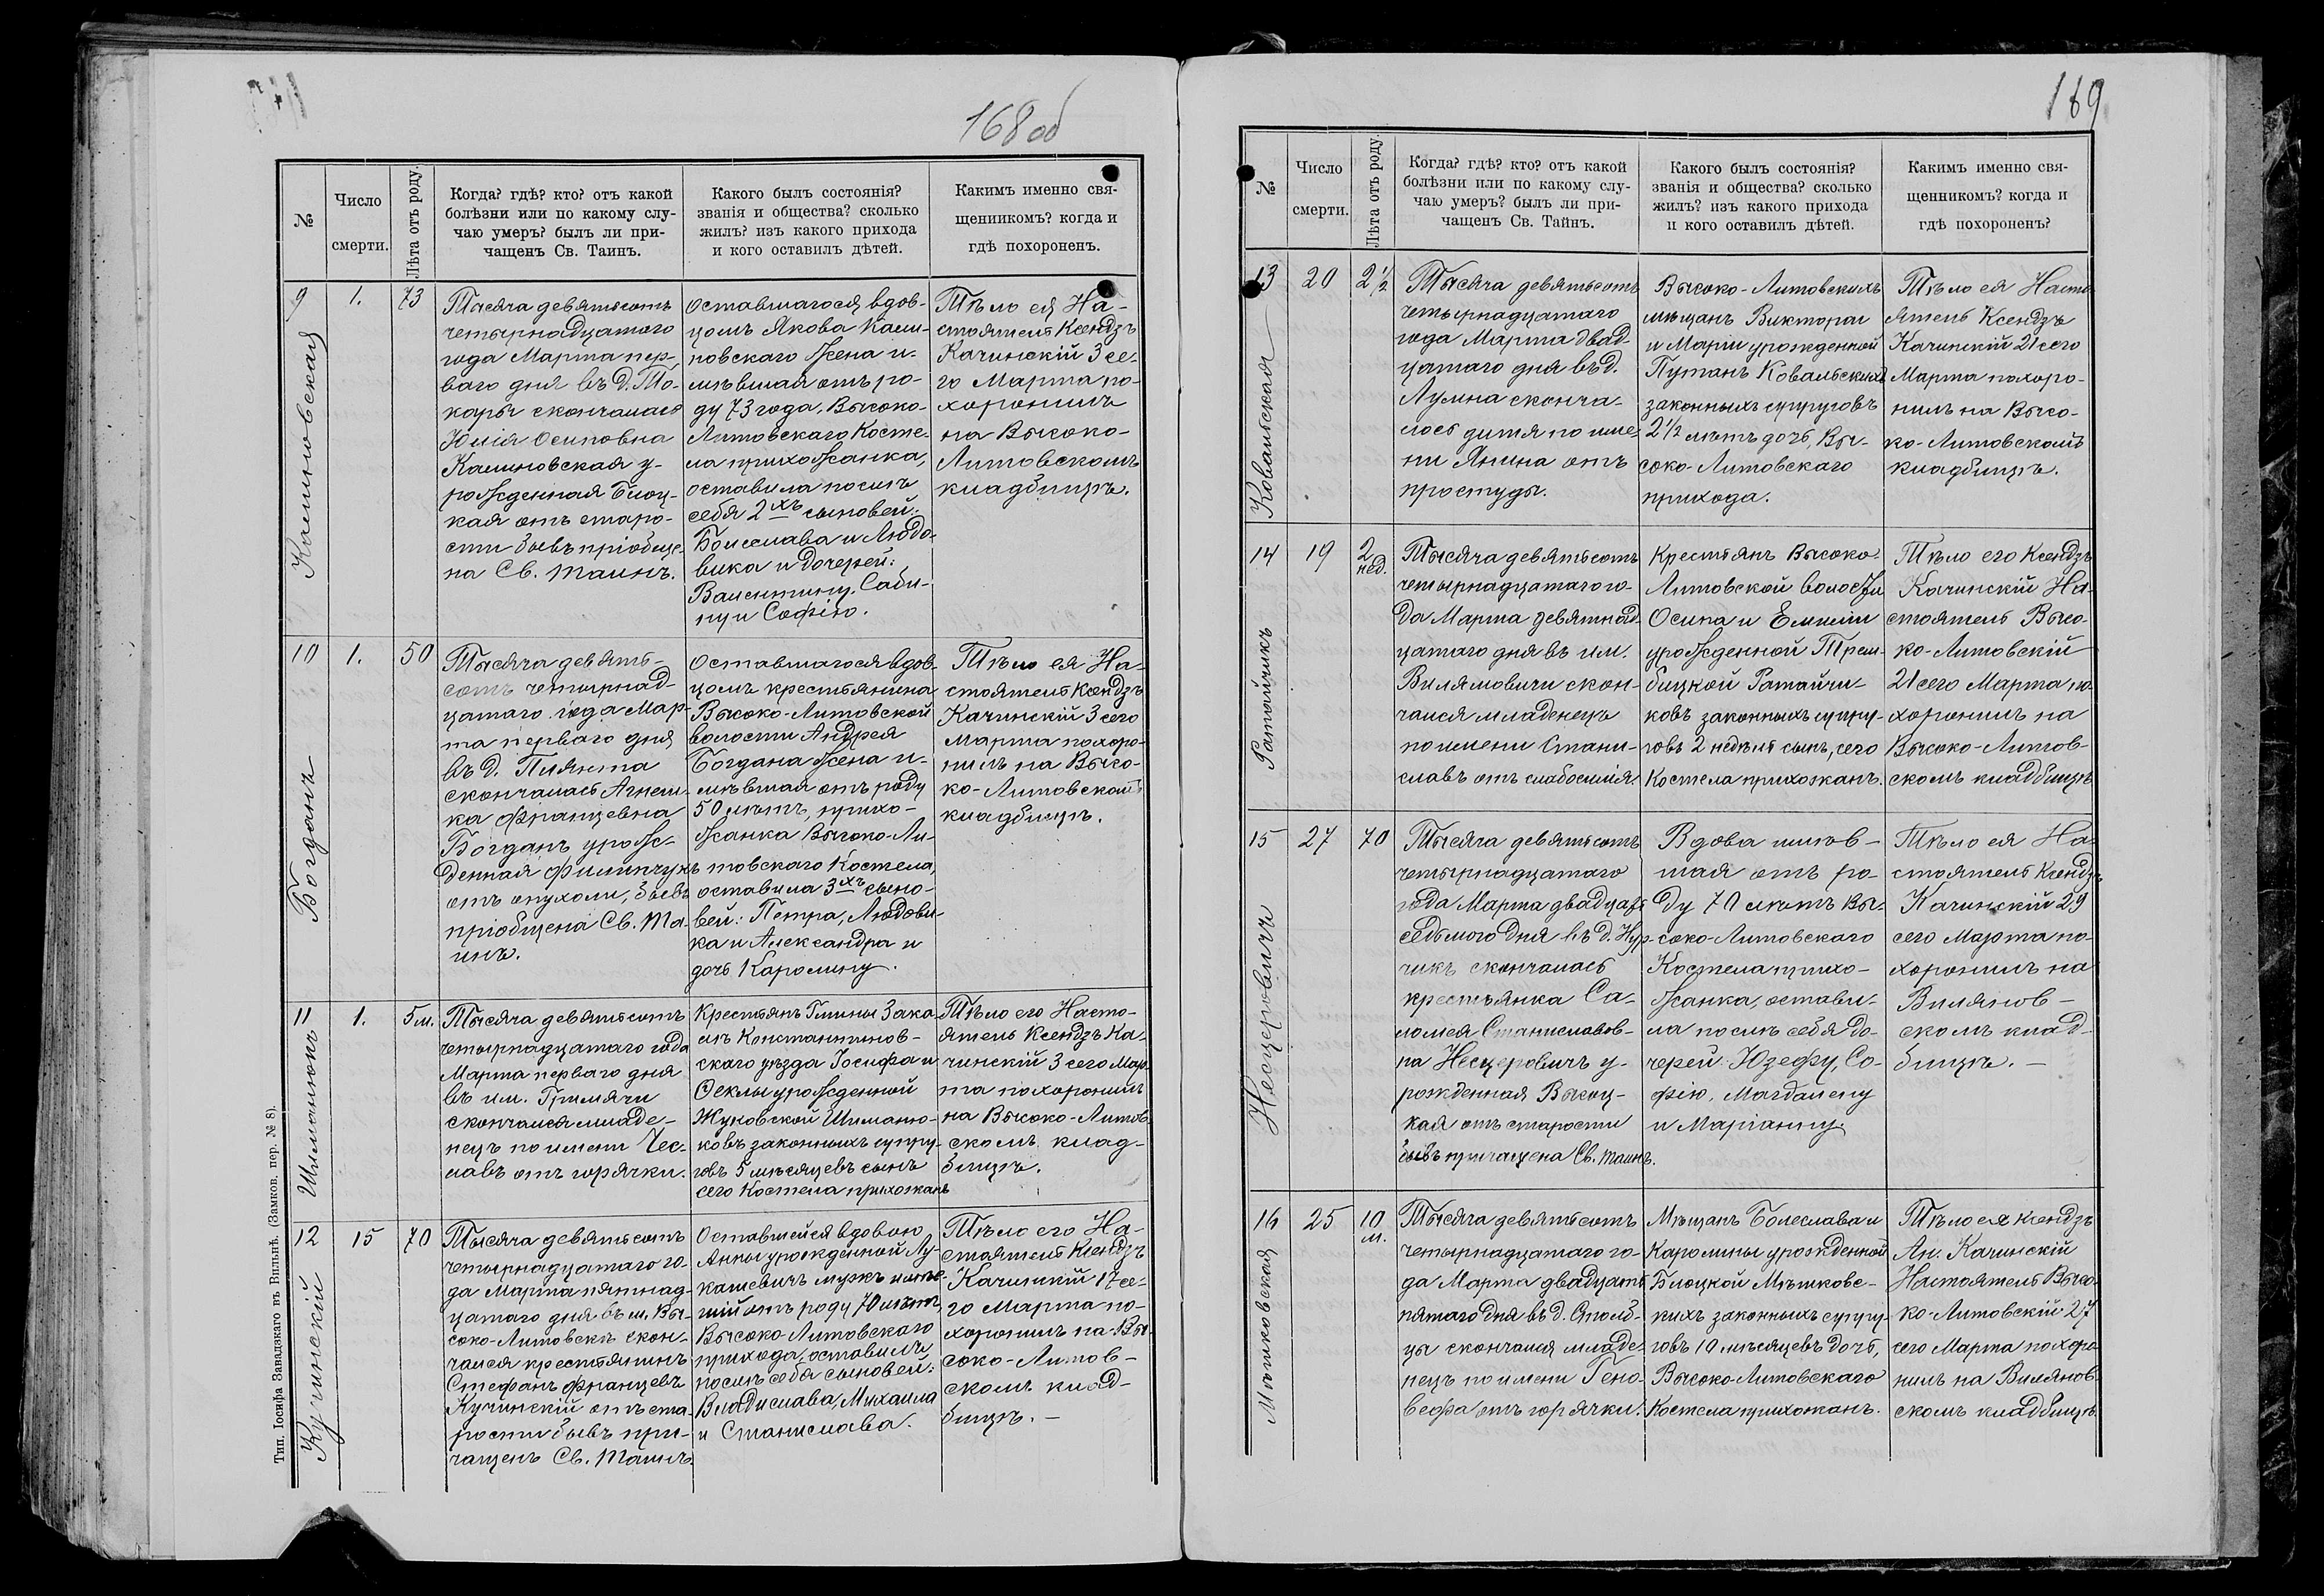 168 об
№
Число
смерти.
Лѣта отъ роду.
Когда? гдѣ? кто? отъ какой
болѣзни или по какому слу-
чаю умеръ? былъ ли при-
чащенъ Св. Таинъ.
Какого былъ состоянія?
званія и общества? сколько
жилъ? изъ какого прихода
и кого оставилъ дѣтей.
Какимъ именно свя-
щенникомъ? когда и
гдѣ похороненъ.
9
Калиновская
1.
73
Тысяча девятьсотъ
четырнадцатого
года Марта пер-
ваго дня въ д. То-
кары скончалась
Юлія Осиповна
Калиновская у-
рожденная Блоц-
кая отъ старо-
сти бывъ пріобще-
на Св. Таинъ.
Оставшагося вдов-
цомъ Якова Кали-
новскаго жена и-
мѣвшая отъ ро-
ду 73 года, Высоко-
Литовскаго Косте-
ла прихожанка,
оставила послѣ
себя 2хъ сыновей:
Болеслава и Людо-
вика и дочерей:
Валентину, Саби-
ну и Софію.
Тѣло ея На-
стоятель Ксендзъ
Качинскій 3 се-
го Марта по-
хоронилъ
на Высоко-
Литовскомъ
кладбищѣ.
10
Богданъ
1.
50
Тысяча девять-
сотъ четырнад-
цатаго года Мар-
та перваго дня
въ д. Пилянта
скончалась Агнеш-
ка Францевна
Богданъ урож-
денная Филипчукъ
отъ опухоли, бывъ
пріобщена Св. Та-
инъ.
Оставшагося вдов-
цомъ крестьянина
Высоко-Литовской
волости Андрея
Богдана жена и-
мѣвшая отъ роду
50 лѣтъ, прихо-
жанка Высоко-Ли-
товскаго Костела,
оставила 3хъ сыно-
вей: Петра, Людови-
ка и Александра и
дочь Каролину.
Тѣло ея На-
стоятель Ксендзъ
Качинскій 3 сего
Марта похоро-
нилъ на Высо-
ко-Литовскомъ
кладбищѣ.
11
Шиманюкъ
1.
5 м.
Тысяча девятьсотъ
четырнадцатаго года
Марта перваго дня
въ им. Гримячи
скончался младе-
нецъ по имени Чес-
лавъ отъ горячки.
Крестьянъ Гмины Зака-
лѣ Константинов-
скаго уѣзда Іосифа и
Ѳеклы урожденной
Жуковской Шиманю-
ковъ законныхъ супру-
говъ 5 мѣсяцевъ сынъ
сего Костела прихожанъ
Тѣло его Насто-
ятель Ксендзъ Ка-
чинскій 3 сего Мар-
та похоронилъ
на Высоко-Литов-
скомъ клад-
бищѣ.
12
Кучинскій
15
70
Тысяча девятьсотъ
четырнадцатаго го-
да Марта пятнад-
цатаго дня въ м. Вы-
соко-Литовскѣ скон-
чался крестьянинъ
Стефанъ Францевъ
Кучинскій отъ ста-
рости бывъ при-
чащенъ Св. Таинъ.
Оставшейся вдовою
Анны урожденной Лу-
кашевичъ мужъ имѣв-
шій отъ роду 70 лѣтъ,
Высоко-Литовскаго
прихода, оставилъ
послѣ себя сыновей:
Владислава, Михаила
и Станислава.
Тѣло его На-
стоятель Ксендзъ
Качинскій 17 се-
го Марта по-
хоронилъ на Вы-
соко-Литов-
скомъ клад-
бищѣ. -
Тип. Іосифа Завадзкаго въ Вильнѣ. (Замков. пер. № 8).
169
№
Число
смерти.
Лѣта отъ роду.
Когда? гдѣ? кто? отъ какой
болѣзни или по какому слу-
чаю умеръ? былъ ли при-
чащенъ Св. Тайнъ.
Какого былъ состоянія?
званія и общества? сколько
жилъ? изъ какого прихода
и кого оставилъ дѣтей.
Какимъ именно свя-
щенникомъ? когда и
гдѣ похороненъ?
13
Ковальская
20
2½
Тысяча девятьсотъ
четырнадцатаго
года Марта двад-
цатаго дня въ д.
Лумна сконча-
лось дитя по име-
ни Янина отъ
простуды.
Высоко-Литовскихъ
мѣщанъ Виктора
и Маріи урожденной
Путанъ Ковальскихъ
законныхъ супруговъ
2½ лѣтъ дочь, Вы-
соко-Литовскаго
прихода.
Тѣло ея Насто-
ятель Ксендзъ
Качинскій 21 сего
Марта похоро-
нилъ на Высо-
ко-Литовскомъ
кладбищѣ.
14
Ратайчикъ
19
2
нед.
Тысяча девятьсотъ
четырнадцатаго го-
да Марта девятнад-
цатаго дня въ им.
Вилямовичи скон-
чался младенецъ
по имени Стани-
славъ отъ слабосилія.
Крестьянъ Высоко-
Литовской волости
Осипа и Емиліи
урожденной Трем-
бицкой Ратайчи-
ковъ законныхъ супру-
говъ 2 недѣли сынъ, сего
Костела прихожанъ.
Тѣло его Ксендзъ
Качинскій На-
стоятель Высо-
ко-Литовскій
21 сего Марта по-
хоронилъ на
Высоко-Литов-
скомъ кладбищѣ
15
Несцеровичъ
27
70
Тысяча девятьсотъ
четырнадцатаго
года Марта двадцать
седьмого дня въ д. Нур-
чикъ скончалась
крестьянка Са-
ломея Станиславов-
на Несцеровичъ у-
рожденная Высоц-
кая отъ старости
бывъ причащена Св. Таинъ.
Вдова имѣв-
шая отъ ро-
ду 70 лѣтъ Вы-
соко-Литовскаго
Костела прихо-
жанка, остави-
ла послѣ себя до-
черей: Юзефу, Со-
фію, Магдалену
и Маріанну.
Тѣло ея На-
стоятель Ксендзъ
Качинскій 29
сего Марта по-
хоронилъ на
Вилянов-
скомъ клад-
бищѣ. -
16
Мѣшковская
25
10
м.
Тысяча девятьсотъ
четырнадцатаго го-
да Марта двадцать
пятаго дня въ д. Столб-
цы скончался младе-
нецъ по имени Гено-
вефа отъ горячки.
Мѣщанъ Болеслава и
Каролины урожденной
Блоцкой Мѣшковс-
кихъ законныхъ супру-
говъ 10 мѣсяцевъ дочь,
Высоко-Литовскаго
Костела прихожанъ.
Тѣло ея Ксендзъ
Ан. Качинскій
Настоятель Высо-
ко-Литовскій 27
сего Марта похоро-
нилъ на Вилянов-
скомъ кладбищѣ.